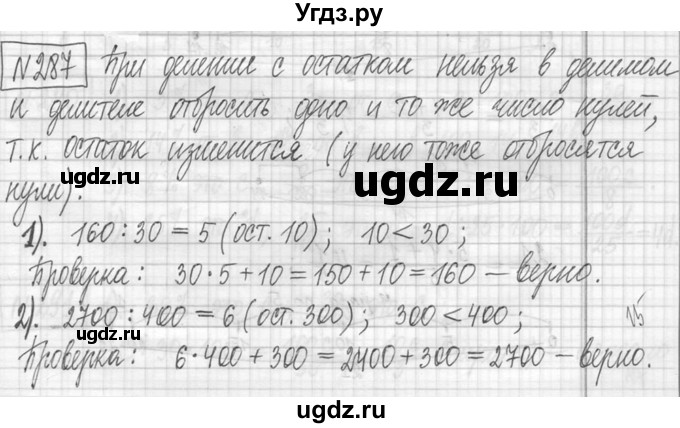 Угдз.ру
№287 При делении с остатком нельзя в делимом
и делителе отбросить одно и то же число нулей,
т.к. остаток изменится (у него тоже отбросятся
нули).
ugdz.ru
ugdz.ru
1). 160 : 30 = 5 (ост. 10); 10 < 30;
Проверка: 30·5 + 10 = 150 + 10 = 160 — верно.
2). 2700 : 400 = 6 (ост. 300); 300 < 400;
Проверка: 6·400 + 300 = 2400 + 300 = 2700 — верно.
ugdz.ru